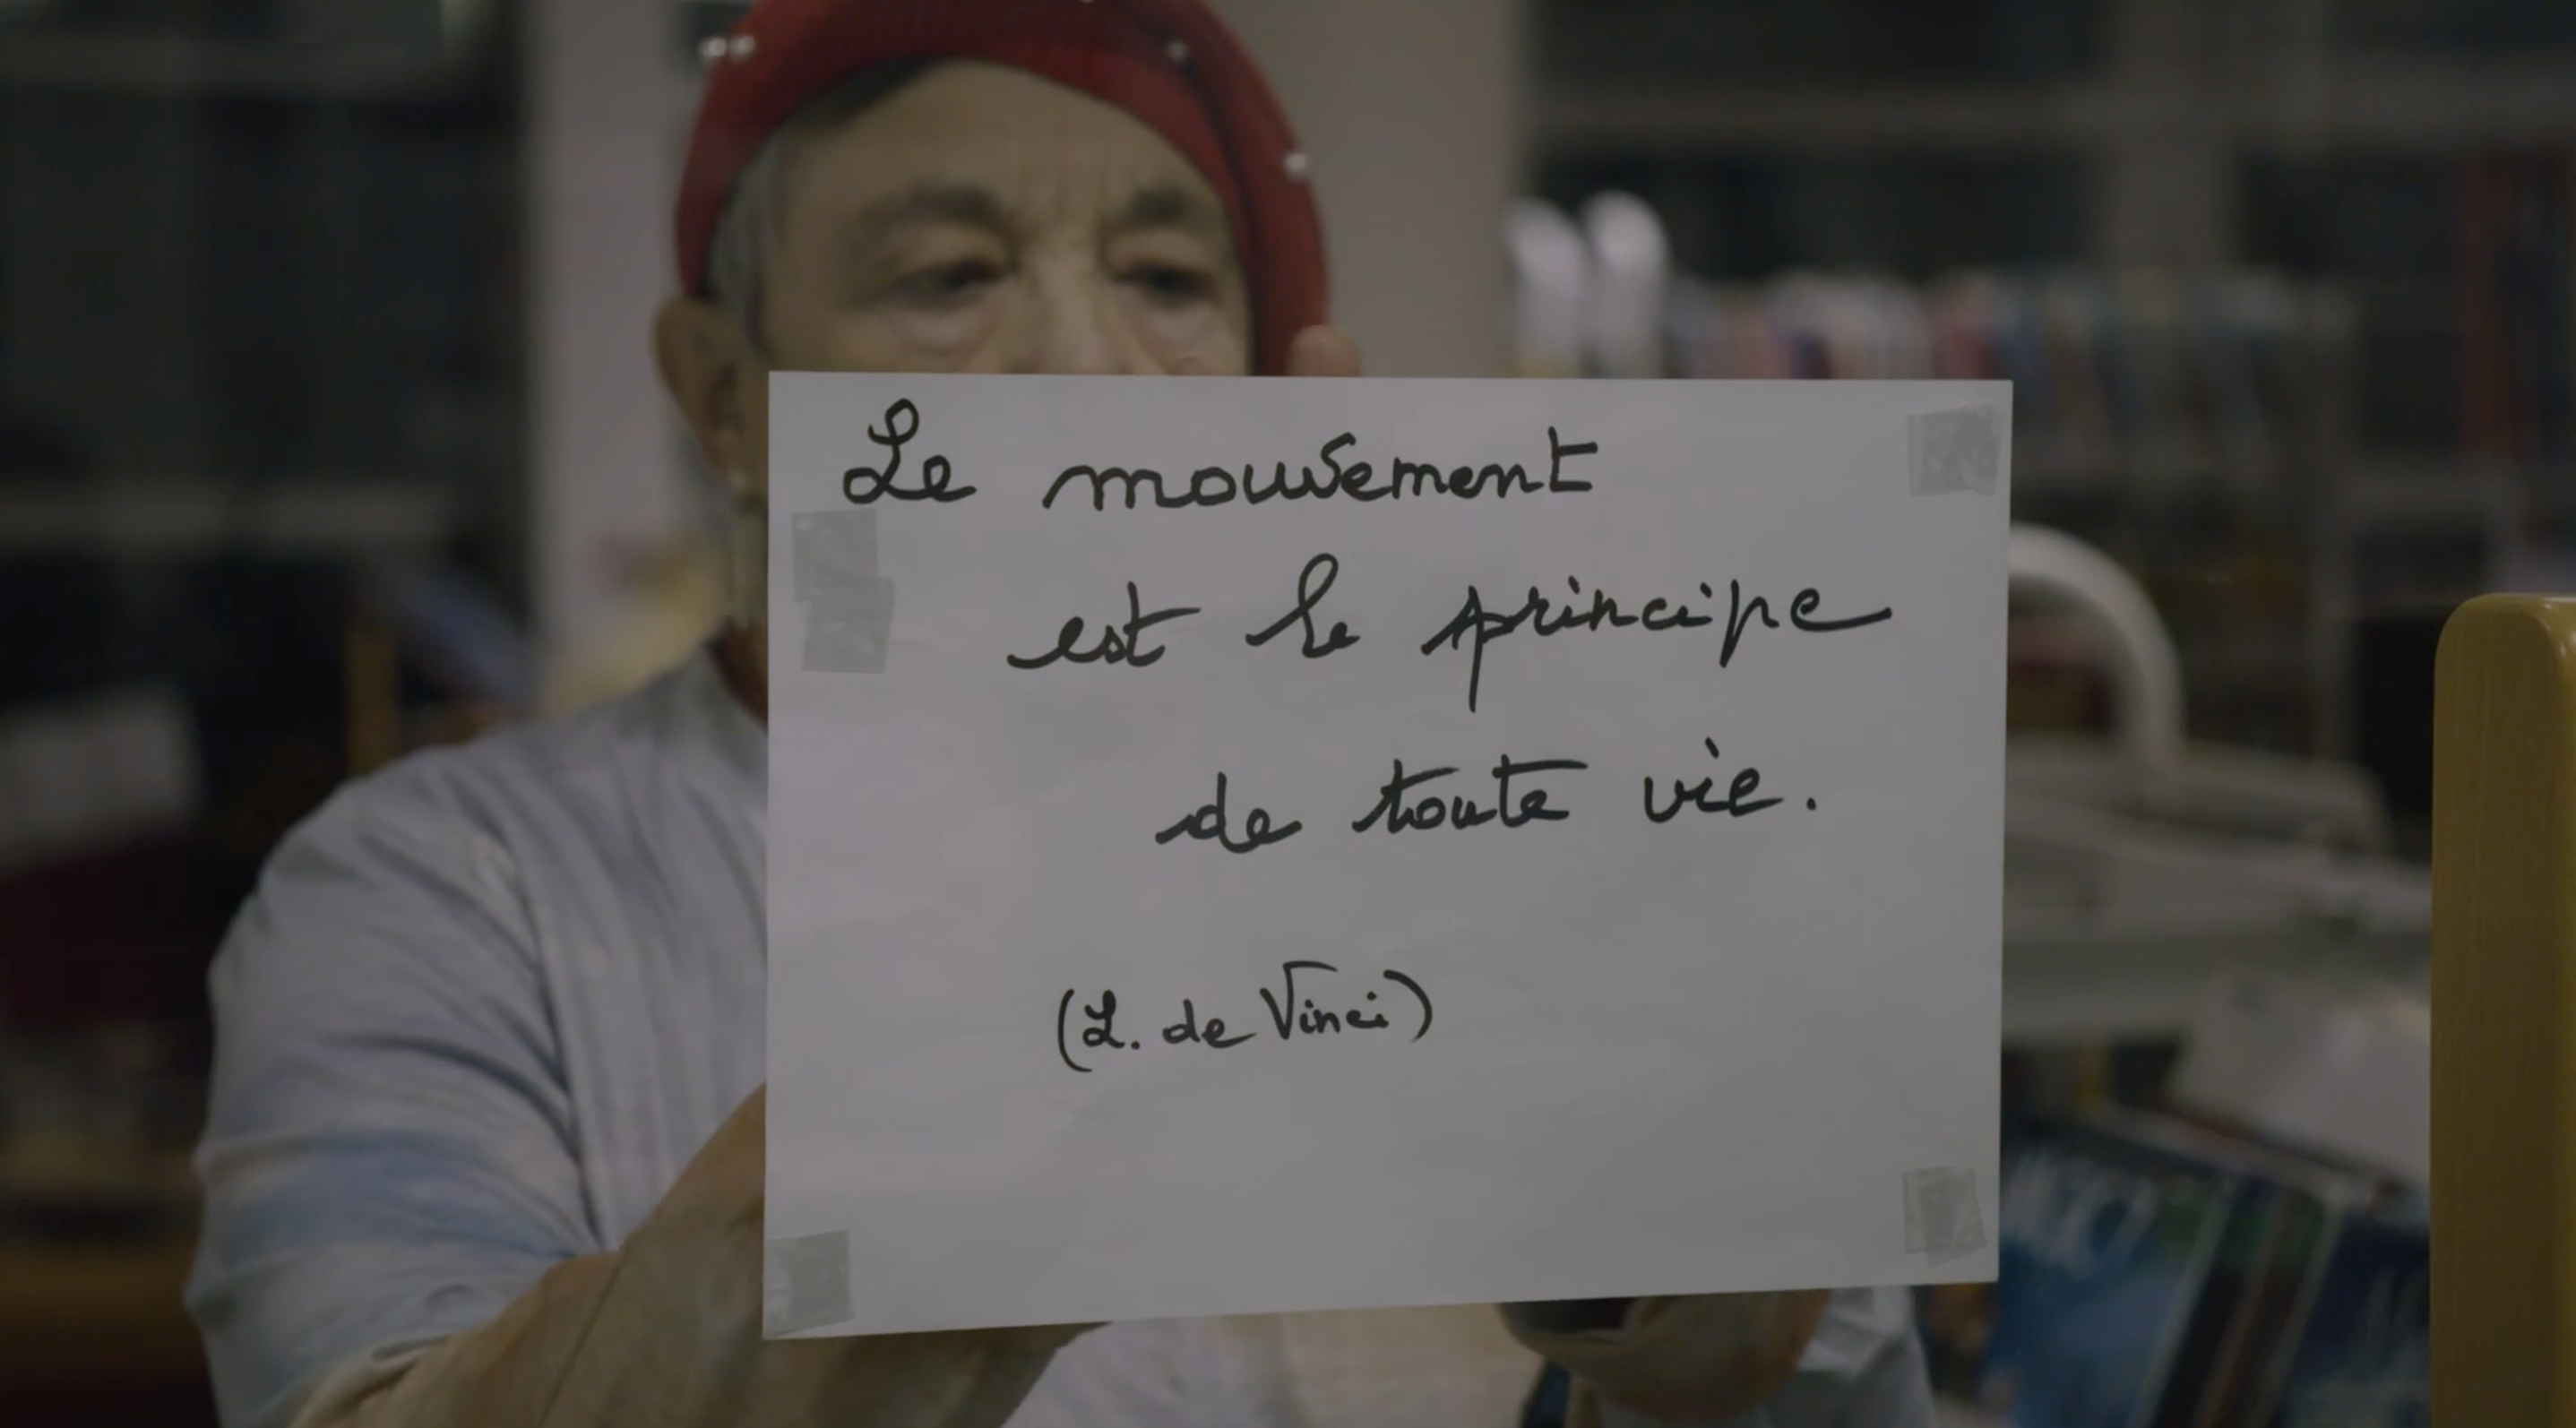 Le mouvement
est le principe
de toute vie.
(L. de Vinci)